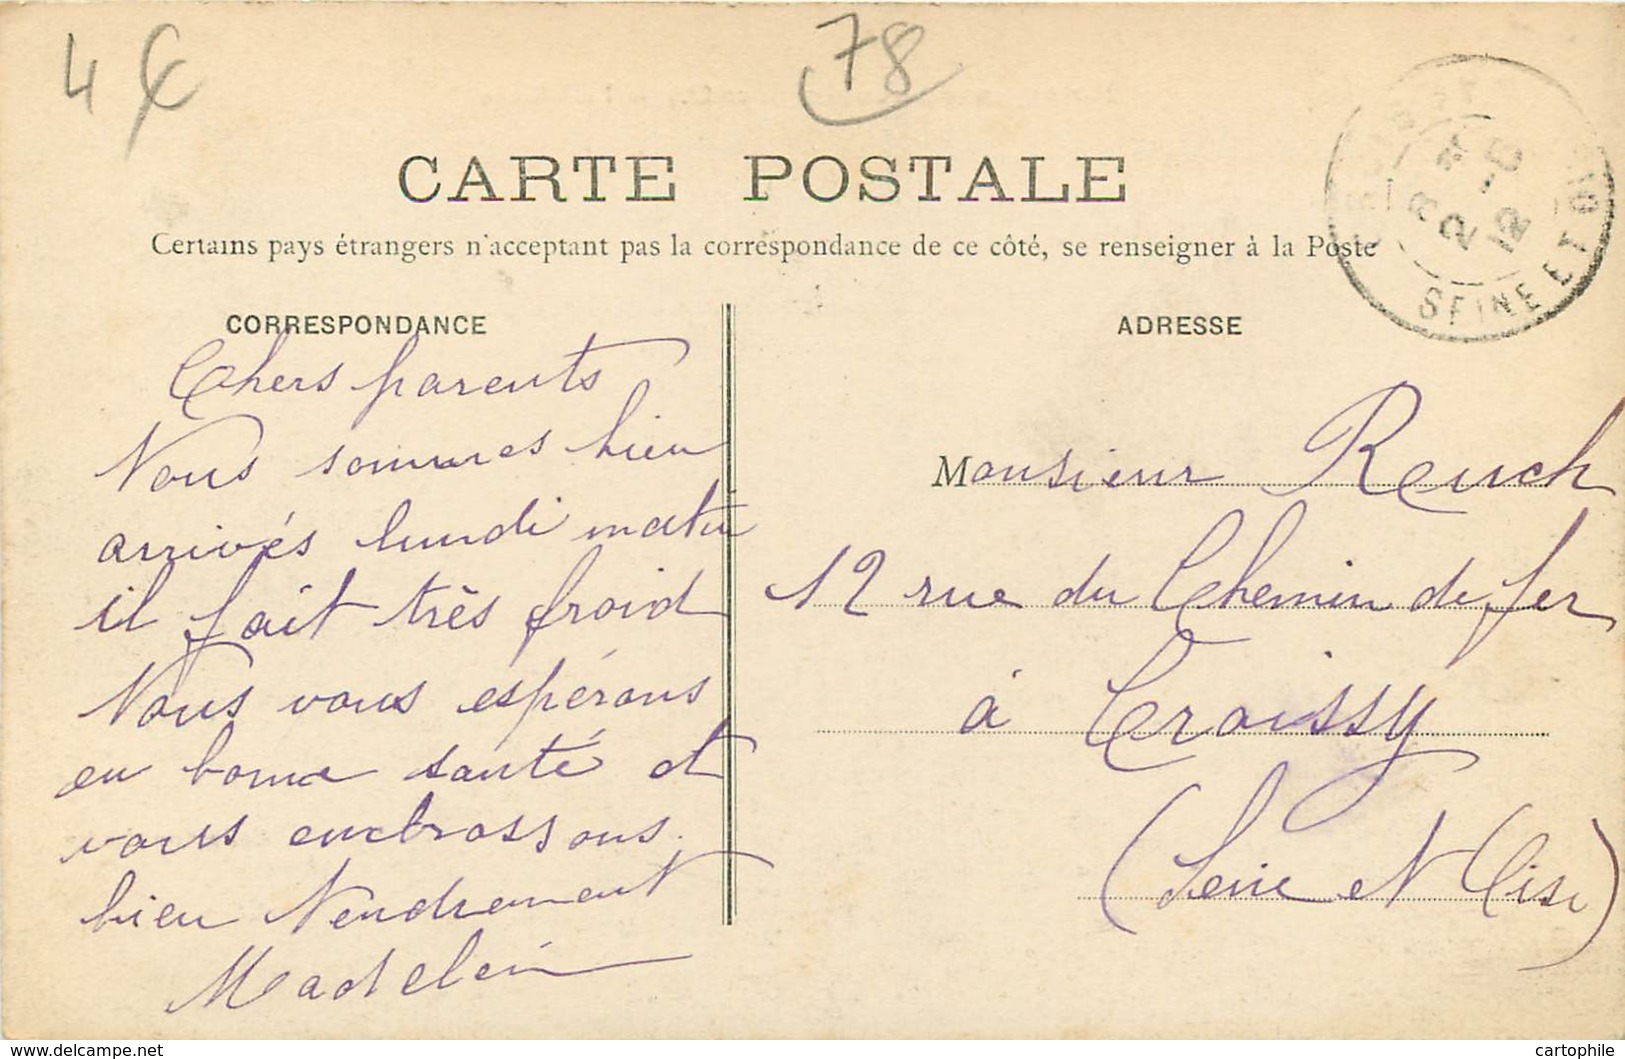 4€
78
CARTE POSTALE
Certains pays étrangers n'acceptant pas la correspondance de ce côté, se renseigner à la Poste
SEINE ET OISE
12
CORRESPONDANCE
Chers parents
Nous sommes bien
arrivés lundi matin
il fait très froid
Nous vous espérons
en bonne santé et
vous embrassons
bien tendrement
Madelein
ADRESSE
Monsieur Reuch
12 rue du Chemin de fer
à Croissy
(Seine et Oise)
www.delcampe.net
cartophile